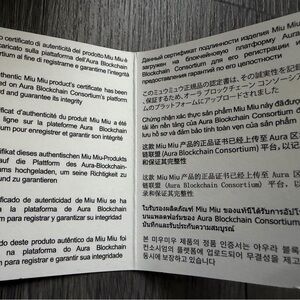 certificato di autenticità del prodotto Miu Miu è
caricato sulla piattaforma dell'Aura Blockchain
sortium al fine di registrarlo e garantirne l'integrità
thentic Miu Miu product's certificate has been
on Aura Blockchain Consortium's platform
and guarantee its integrity
rtificat d'authenticité du produit Miu Miu a été
ligne sur la plateforme Aura Blockchain
um pour enregistrer et garantir son intégrité
tifikat dieses authentischen Miu Miu-Produkts
auf die Plattform des Aura-Blockchain-
ms hochgeladen, um seine Richtigkeit zu
und zu garantieren
ificado de autenticidad de Miu Miu se ha
la plataforma de Aura Blockchain
para registrar y garantizar su integridad
do deste produto autêntico da Miu Miu foi
na plataforma do Aura Blockchain
para registrar e garantir sua integridade
Данный сертификат подлинности изделия Miu Miu
загружен на блокчейновую платформу Aura
Blockchain Consortium для его регистрации и
предоставления гарантий его целостности
このミュウミュウ製品の認定書は、その誠実性を記録
、保証するため、オーラ ブロックチェーン コンソーシアム
のプラットフォームにアップロードされました
Chứng nhận xác thực sản phẩm Miu Miu này đã được
tải lên nền tảng Aura Blockchain Consortium để
lưu hồ sơ và đảm bảo tính toàn vẹn của sản phẩm
这款 Miu Miu 产品的正品证书已经上传至 Aura 区
链联盟 (Aura Blockchain Consortium) 平台，以记
和保证其完整性
這款 Miu Miu 產品的正品證書已經上傳至 Aura 區
鏈聯盟 (Aura Blockchain Consortium) 平台，
錄和保證其完整性
ใบรับรองผลิตภัณฑ์ Miu Miu ของแท้นี้ได้รับการอัปโ
บนแพลตฟอร์มของ Aura Blockchain Consortium
บันทึกและรับประกันความสมบูรณ์
본 미우미우 제품의 정품 인증서는 아우라 블록
컨소시엄의 플랫폼에 업로드되어 무결성을 제고
에 보장하고 있습니다